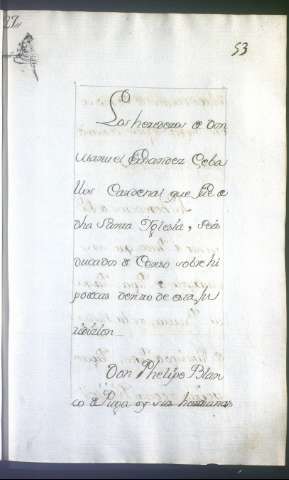 53
Los herederos de Don
Manuel Fernandez Ceba
llos Cardenal que fue de
dha Santa Iglesia, seis
ducados de Censo sobre hi
potecas dentro de esta Ju
risdizion
Don Phelipe Blan
co de Puga y sus hermanos